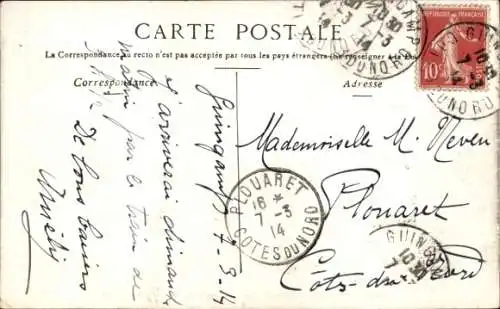 CARTE POSTALE
La Correspondance au recto n'est pas acceptée par tous les pays étrangers (Se renseigner à la Po
Correspondance
Adresse
RÉPUBLIQUE FRANÇAISE
10c
GUINGAMP
10 30
7 -3
14
COTES DU NORD
Guingamp 7-3-14
J'arriverai dimanche
matin par le train de
De bons baisers
Mademoiselle M. Neveu
Plouaret
Côtes-du-Nord
PLOUARET
16 *
7 -3
14
COTES DU NORD
GUINGAMP
10 30
7